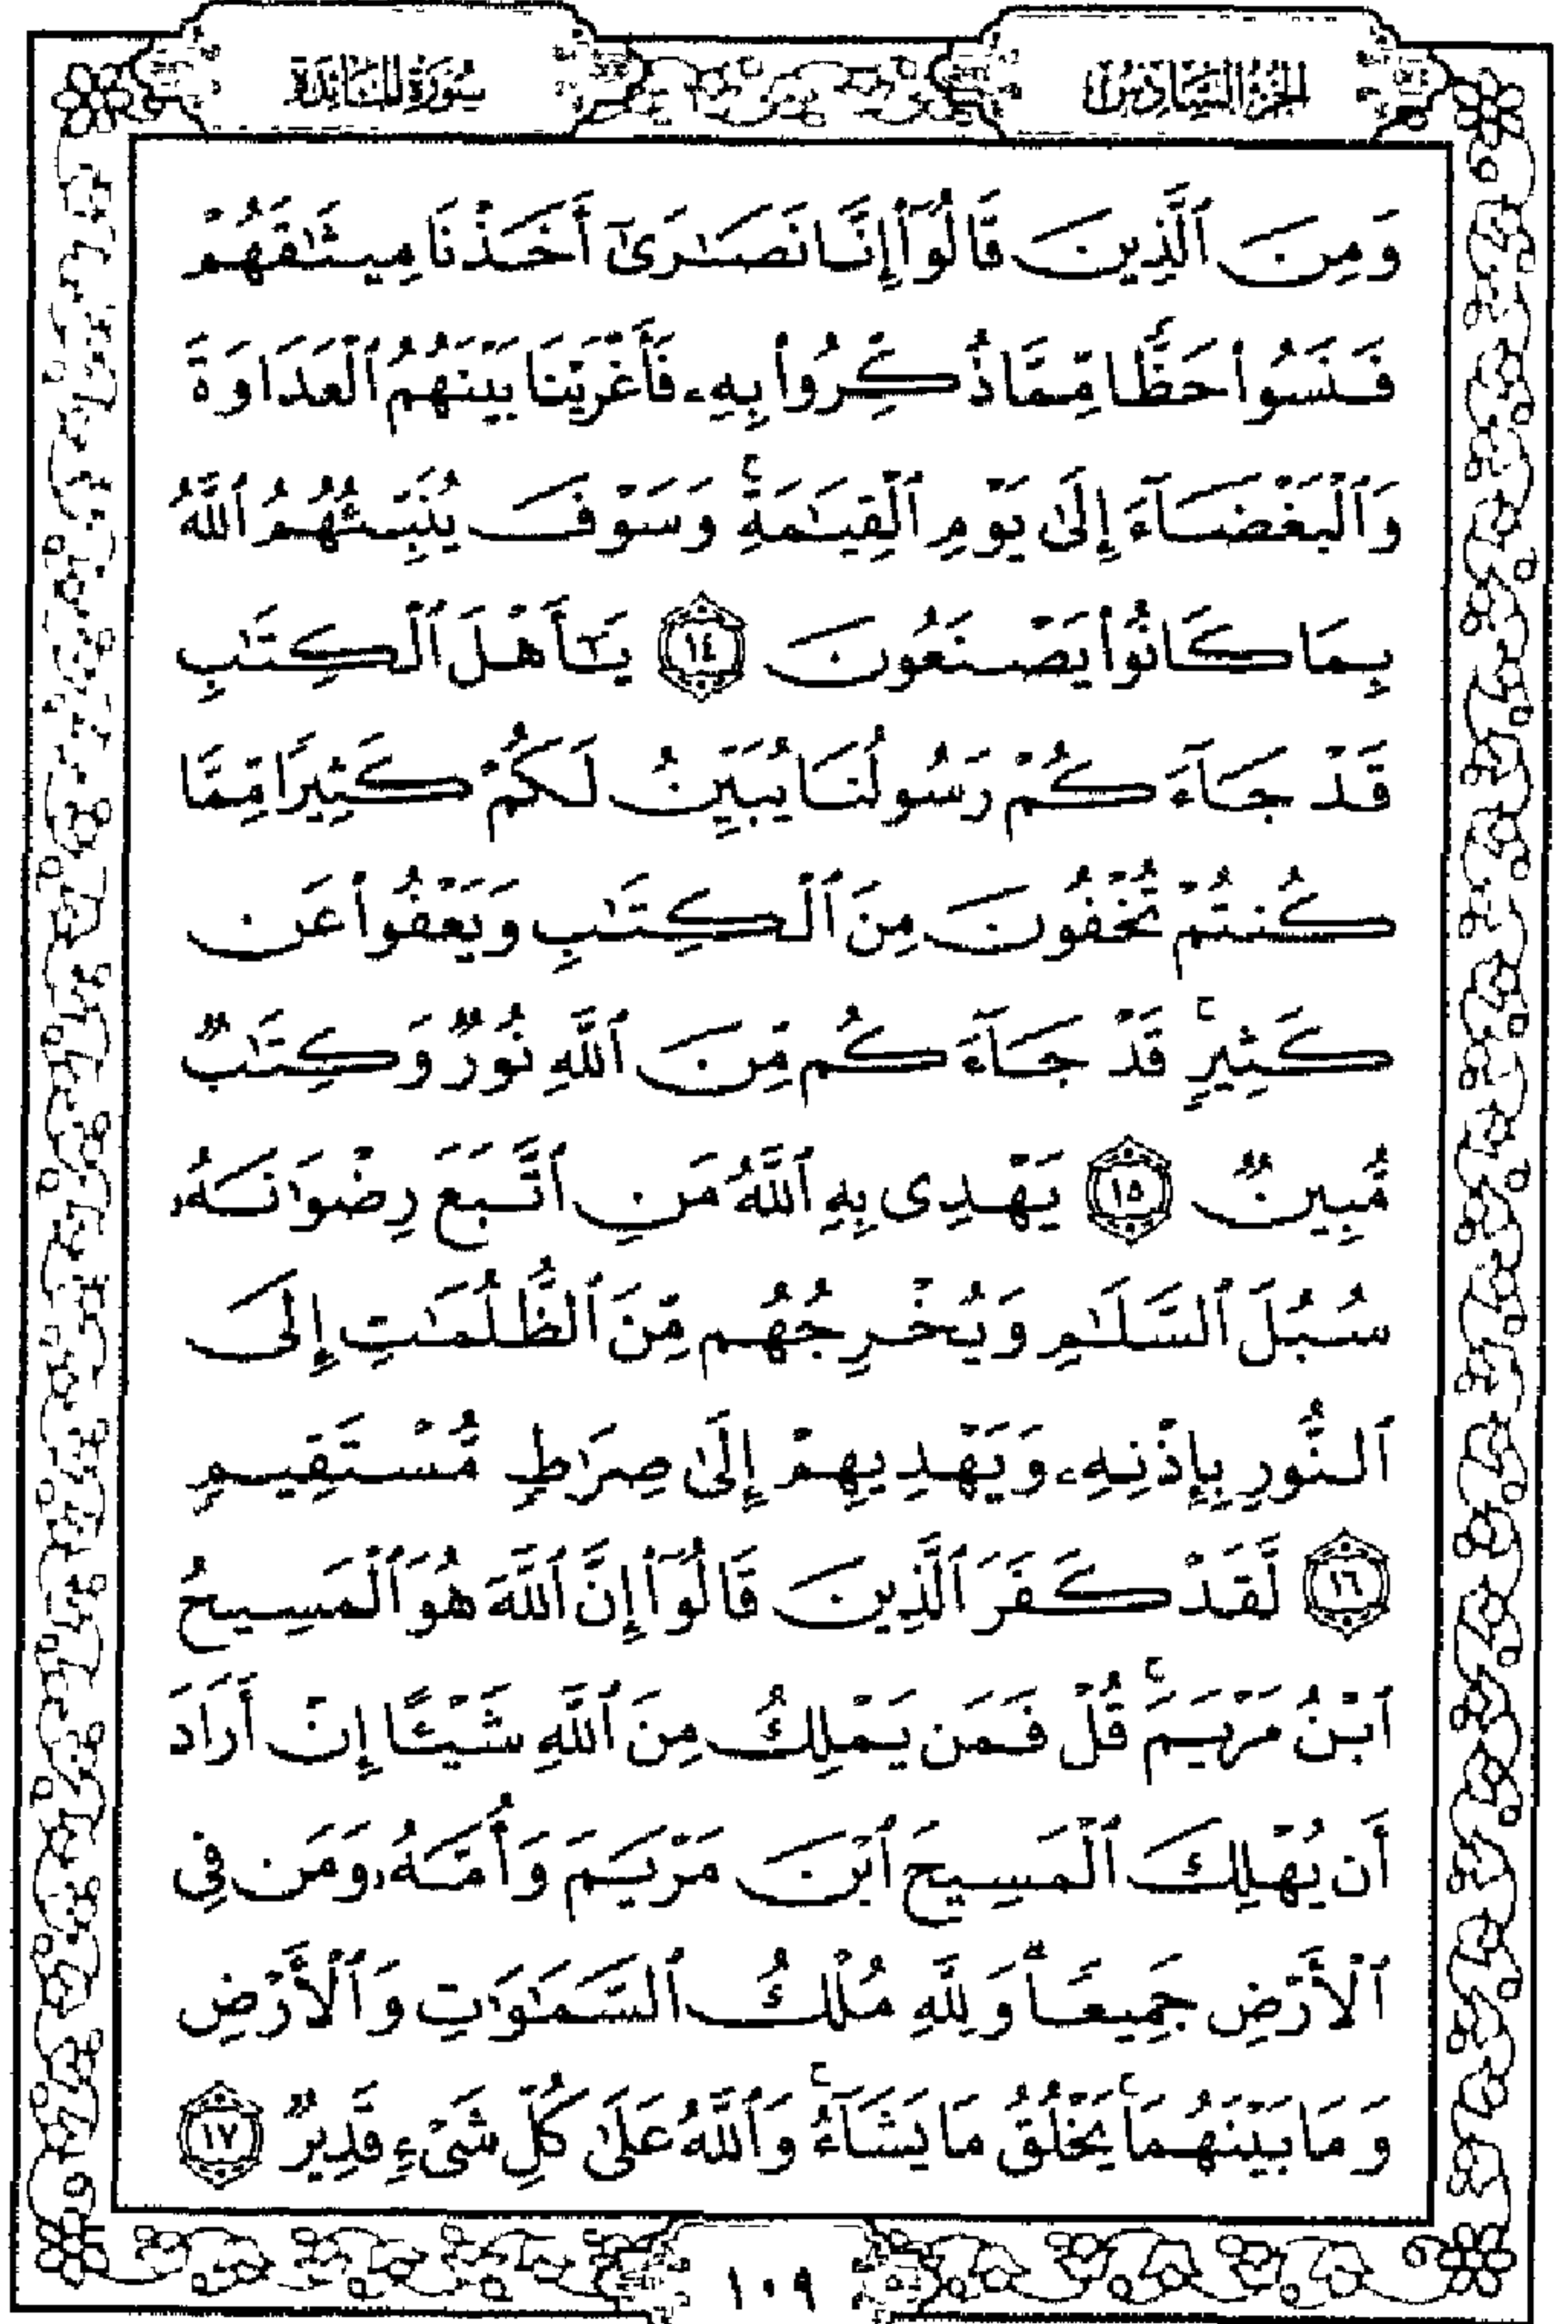 الجزء السادس
سورة المائدة
وَمِنَ ٱلَّذِينَ قَالُوٓا۟ إِنَّا نَصَـٰرَىٰٓ أَخَذْنَا مِيثَـٰقَهُمْ
فَنَسُوا۟ حَظًّا مِّمَّا ذُكِّرُوا۟ بِهِۦ فَأَغْرَيْنَا بَيْنَهُمُ ٱلْعَدَاوَةَ
وَٱلْبَغْضَآءَ إِلَىٰ يَوْمِ ٱلْقِيَـٰمَةِ ۚ وَسَوْفَ يُنَبِّئُهُمُ ٱللَّهُ
بِمَا كَانُوا۟ يَصْنَعُونَ ١٤ يَـٰٓأَهْلَ ٱلْكِتَـٰبِ
قَدْ جَآءَكُمْ رَسُولُنَا يُبَيِّنُ لَكُمْ كَثِيرًا مِّمَّا
كُنتُمْ تُخْفُونَ مِنَ ٱلْكِتَـٰبِ وَيَعْفُوا۟ عَن
كَثِيرٍ ۚ قَدْ جَآءَكُم مِّنَ ٱللَّهِ نُورٌ وَكِتَـٰبٌ
مُّبِينٌ ١٥ يَهْدِى بِهِ ٱللَّهُ مَنِ ٱتَّبَعَ رِضْوَٰنَهُۥ
سُبُلَ ٱلسَّلَـٰمِ وَيُخْرِجُهُم مِّنَ ٱلظُّلُمَـٰتِ إِلَى
ٱلنُّورِ بِإِذْنِهِۦ وَيَهْدِيهِمْ إِلَىٰ صِرَٰطٍ مُّسْتَقِيمٍ
١٦ لَّقَدْ كَفَرَ ٱلَّذِينَ قَالُوٓا۟ إِنَّ ٱللَّهَ هُوَ ٱلْمَسِيحُ
ٱبْنُ مَرْيَمَ ۚ قُلْ فَمَن يَمْلِكُ مِنَ ٱللَّهِ شَيْـًٔا إِنْ أَرَادَ
أَن يُهْلِكَ ٱلْمَسِيحَ ٱبْنَ مَرْيَمَ وَأُمَّهُۥ وَمَن فِى
ٱلْأَرْضِ جَمِيعًا ۗ وَلِلَّهِ مُلْكُ ٱلسَّمَـٰوَٰتِ وَٱلْأَرْضِ
وَمَا بَيْنَهُمَا ۚ يَخْلُقُ مَا يَشَآءُ ۚ وَٱللَّهُ عَلَىٰ كُلِّ شَىْءٍ قَدِيرٌ ١٧
١٠٩